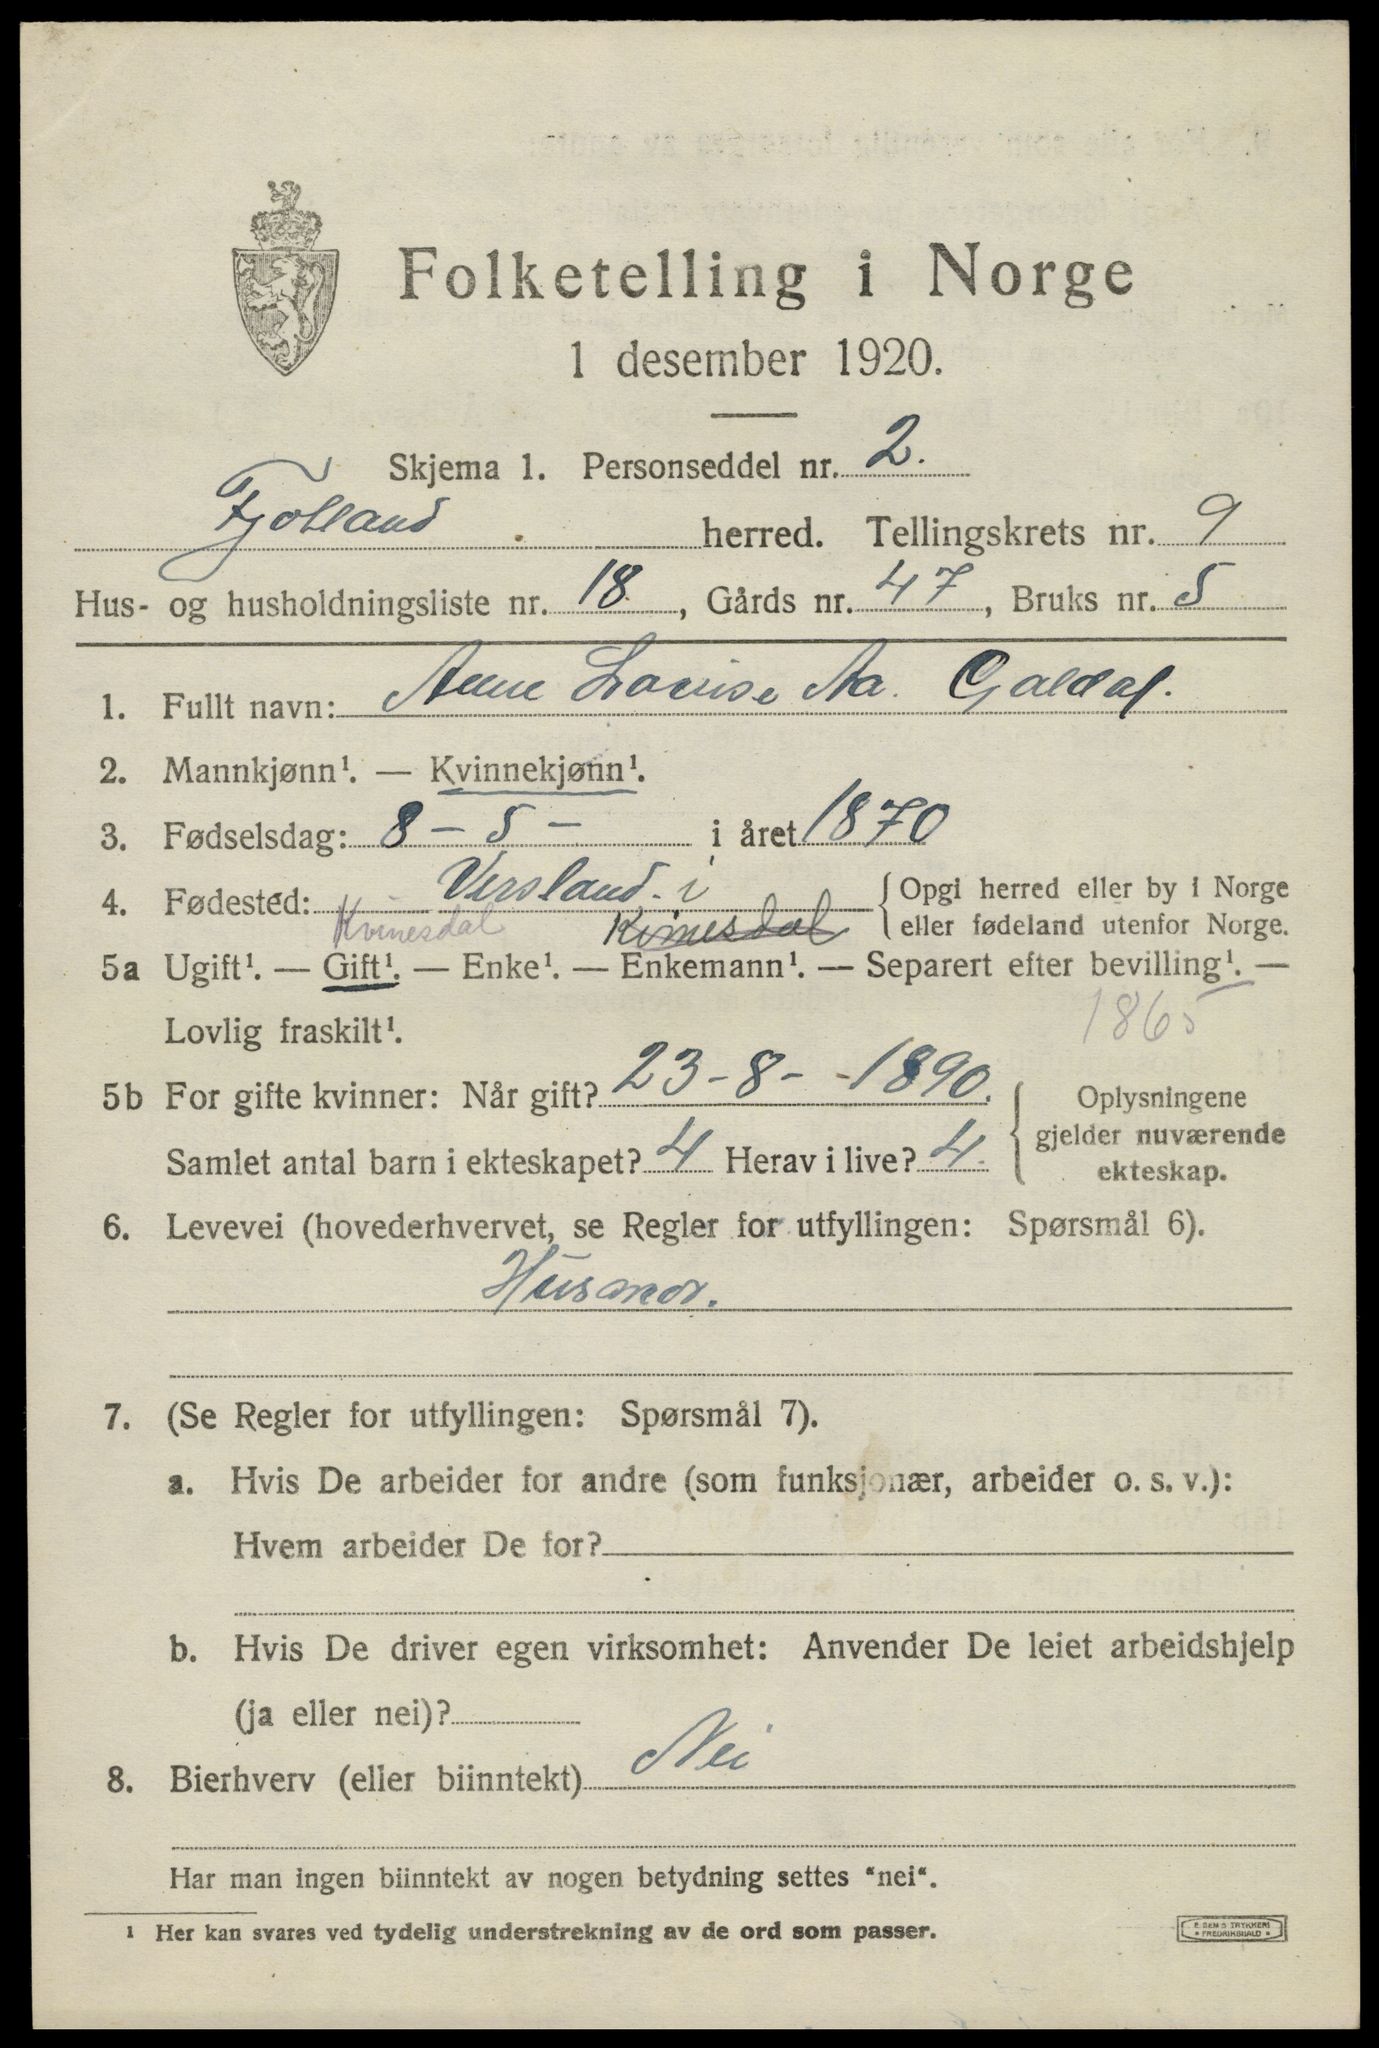 Folketelling i Norge
1 desember 1920.
Skjema 1. Personseddel nr. 2.
Fjotland herred. Tellingskrets nr. 9
Hus- og husholdningsliste nr. 18, Gårds nr. 47, Bruks nr. 5
1. Fullt navn: Anne Lovise Aa. Galdal.
2. Mannkjønn¹. — Kvinnekjønn¹.
3. Fødselsdag: 8 – 5 – i året 1870
4. Fødested: Versland i
Kvinesdal Kvinesdal
{ Opgi herred eller by i Norge
eller fødeland utenfor Norge.
5a Ugift¹. — Gift¹. — Enke¹. — Enkemann¹. — Separert efter bevilling¹. —
Lovlig fraskilt¹. 1865
5b For gifte kvinner: Når gift? 23 – 8 – - 1890.
Samlet antal barn i ekteskapet? 4 Herav i live? 4.
{ Oplysningene
gjelder nuværende
ekteskap.
6. Levevei (hovederhvervet, se Regler for utfyllingen: Spørsmål 6).
Husmor.
7. (Se Regler for utfyllingen: Spørsmål 7).
a. Hvis De arbeider for andre (som funksjonær, arbeider o. s. v.):
Hvem arbeider De for?
b. Hvis De driver egen virksomhet: Anvender De leiet arbeidshjelp
(ja eller nei)?
8. Bierhverv (eller biinntekt) Nei
Har man ingen biinntekt av nogen betydning settes "nei".
¹ Her kan svares ved tydelig understrekning av de ord som passer.
E. SEMS TRYKKERI
* FREDRIKSHALD *